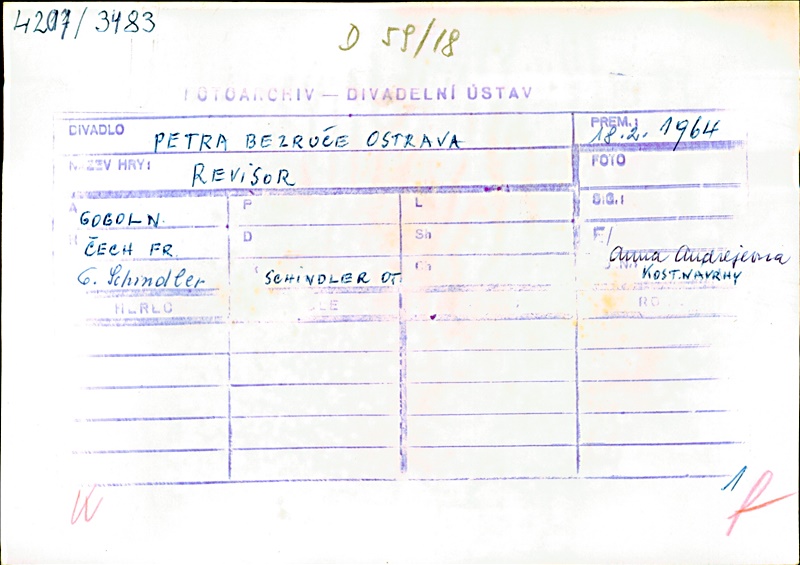 4207/3483
D 59/18
FOTOARCHIV — DIVADELNÍ ÚSTAV
DIVADLO PETRA BEZRUČE OSTRAVA
PREM.: 18.2. 1964
NÁZEV HRY: REVISOR
FOTO
A GOGOL N. P L SIG.:
ČECH FR. D Sh
Anna Andrejevna
O. Schindler SCHINDLER OT. Ch KOST. NÁVRHY
HEREC
1